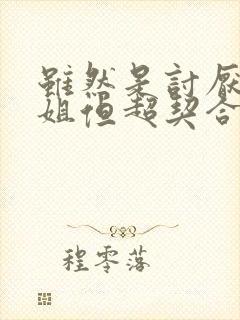 雖然是討厭
姐但超契合
程零落